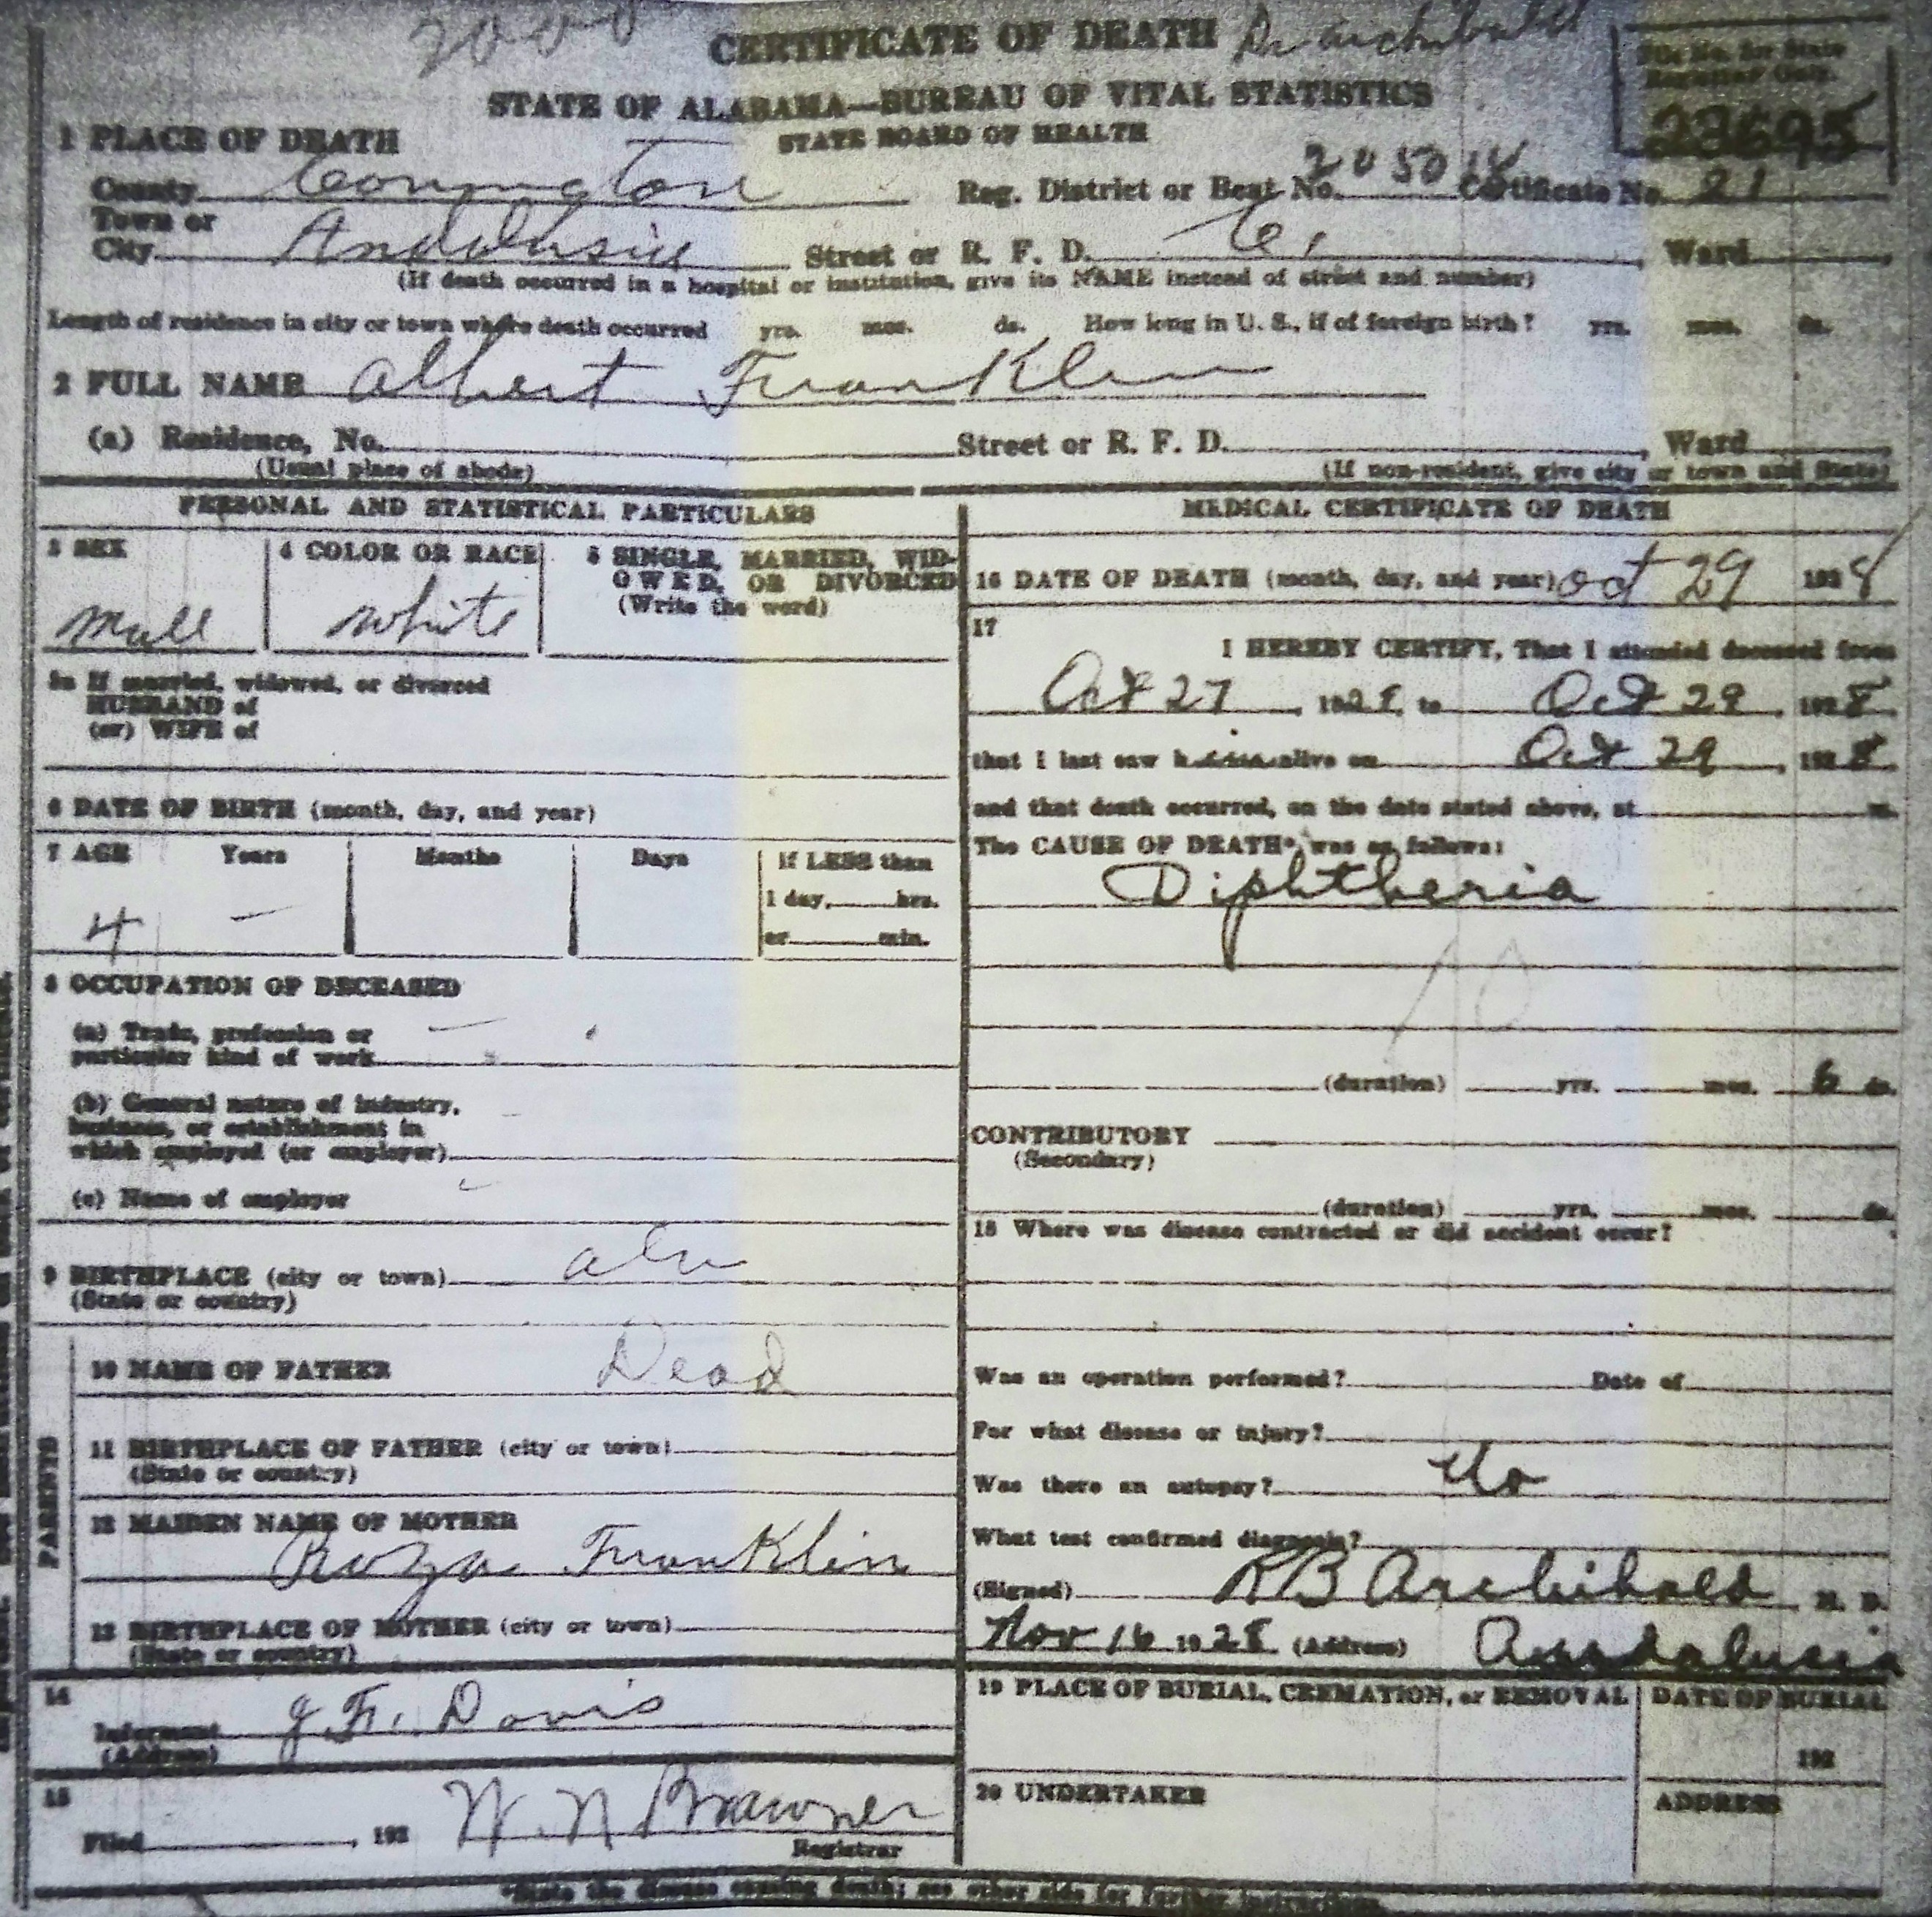 CERTIFICATE OF DEATH Dr archibald
STATE OF ALABAMA—BUREAU OF VITAL STATISTICS
STATE BOARD OF HEALTH
File No. for State Registrar Only.
23695
1 PLACE OF DEATH
County Covington Reg. District or Beat No. Certificate No. 21
Town or City Andalusia Street or R. F. D. Ward
(If death occurred in a hospital or institution, give its NAME instead of street and number)
Length of residence in city or town where death occurred yrs. mos. ds. How long in U. S., if of foreign birth? yrs. mos. ds.
2 FULL NAME Albert Franklin
(a) Residence, No. Street or R. F. D. Ward
(Usual place of abode) (If non-resident, give city or town and State)
PERSONAL AND STATISTICAL PARTICULARS
3 SEX
male
4 COLOR OR RACE
white
5 SINGLE, MARRIED, WID-
OWED, OR DIVORCED
(Write the word)
5a If married, widowed, or divorced
HUSBAND of
(or) WIFE of
6 DATE OF BIRTH (month, day, and year)
7 AGE Years Months Days If LESS than
1 day, hrs.
or min.
4 —
8 OCCUPATION OF DECEASED
(a) Trade, profession or
particular kind of work
(b) General nature of industry,
business, or establishment in
which employed (or employer)
(c) Name of employer
9 BIRTHPLACE (city or town) ala
(State or country)
PARENTS
10 NAME OF FATHER Dead
11 BIRTHPLACE OF FATHER (city or town)
(State or country)
12 MAIDEN NAME OF MOTHER
Roza Franklin
13 BIRTHPLACE OF MOTHER (city or town)
(State or country)
14
Informant J. F. Davis
(Address)
15
Filed , 192 W. N Brawner
Registrar
MEDICAL CERTIFICATE OF DEATH
16 DATE OF DEATH (month, day, and year) oct 29 1928
17
I HEREBY CERTIFY, That I attended deceased from
Oct 27, 1928, to Oct 29, 1928
that I last saw h alive on Oct 29, 1928
and that death occurred, on the date stated above, at m.
The CAUSE OF DEATH* was as follows:
Diphtheria
10
(duration) yrs. mos. 6 ds.
CONTRIBUTORY
(Secondary)
(duration) yrs. mos. ds.
18 Where was disease contracted or did accident occur?
Was an operation performed? Date of
For what disease or injury?
Was there an autopsy? No
What test confirmed diagnosis?
(Signed) RB Archibald M. D.
Nov 16 1928 (Address) Andalusia
19 PLACE OF BURIAL, CREMATION, or REMOVAL
DATE OF BURIAL
192
20 UNDERTAKER
ADDRESS
*State the disease causing death; see other side for further instructions.